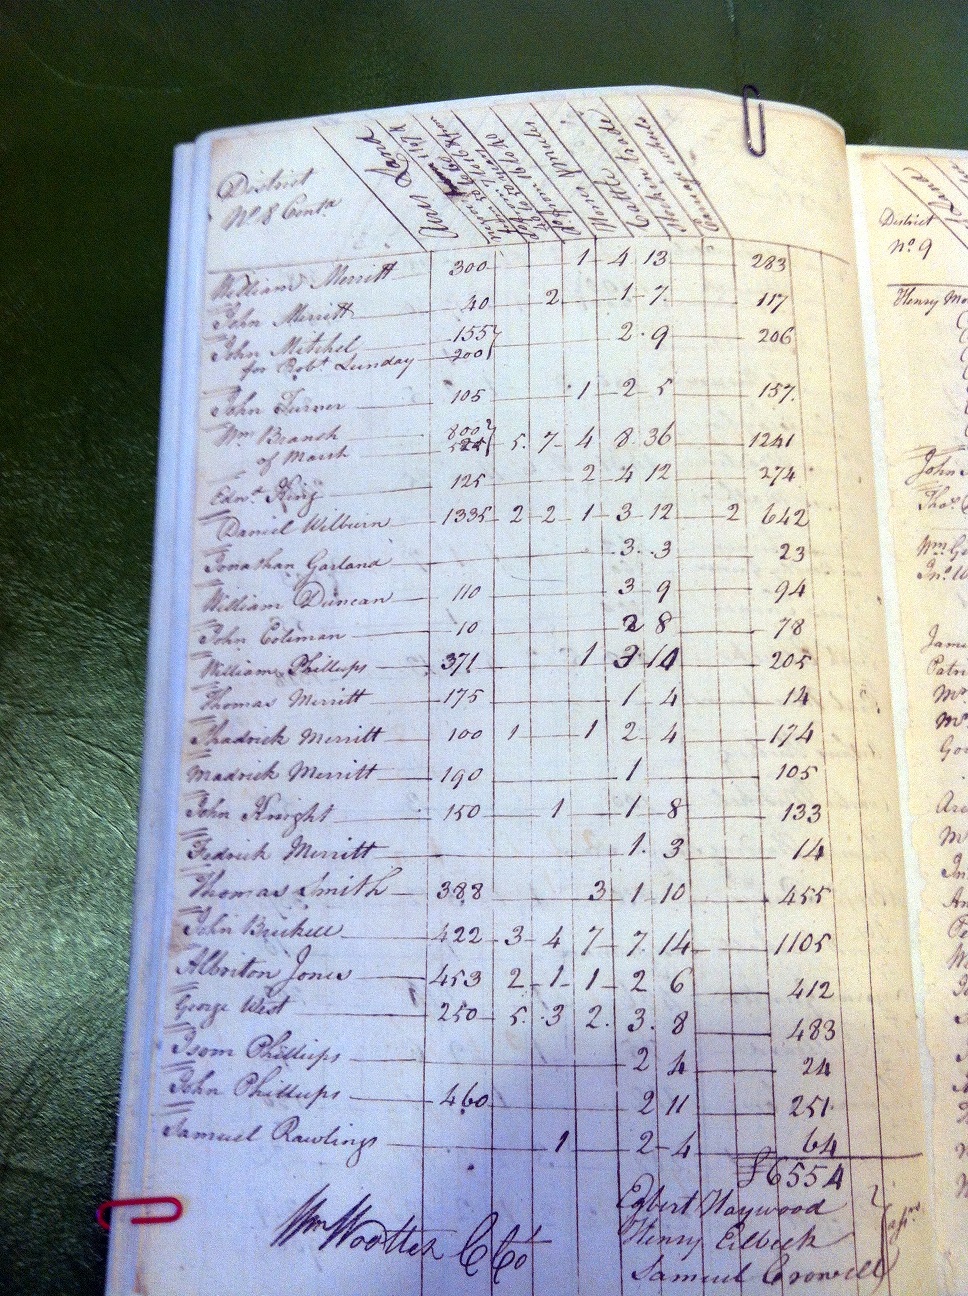 District
No. 8 Contd
Acres Land
Horses & Mares
Cattle
Stock in trade
William Merritt 300 1 4 13 283
John Merritt 40 2 1 7 117
John Mitchel 155 2 9 206
for Robt Lunday 200
John Turner 105 1 2 5 157
Wm Branch 800 5 7 4 8 36 1241
of Marsh
Edwt King 125 2 4 12 274
Daniel Wilburn 1335 2 2 1 3 12 2 642
Jonathan Garland 3 3 23
William Duncan 110 3 9 94
John Coleman 10 2 8 78
William Phillups 371 1 3 10 205
Thomas Merritt 175 1 4 14
Shadrick Merritt 100 1 1 2 4 174
Madrick Merritt 190 1 105
John Knight 150 1 1 8 133
Fedrick Merritt 1 3 14
Thomas Smith 388 3 1 10 455
John Brickell 422 3 4 7 7 14 1105
Albriton Jones 453 2 1 1 2 6 412
George West 250 5 3 2 3 8 483
Isom Phillips 2 4 24
John Phillups 460 2 11 251
Samuel Rawlings 1 2 4 64
£6554
Egbert Haywood
Wm Wootten C Ct Henry Eelbeck
Samuel Crowell
District
No. 9
Henry
John
Thos
Wm